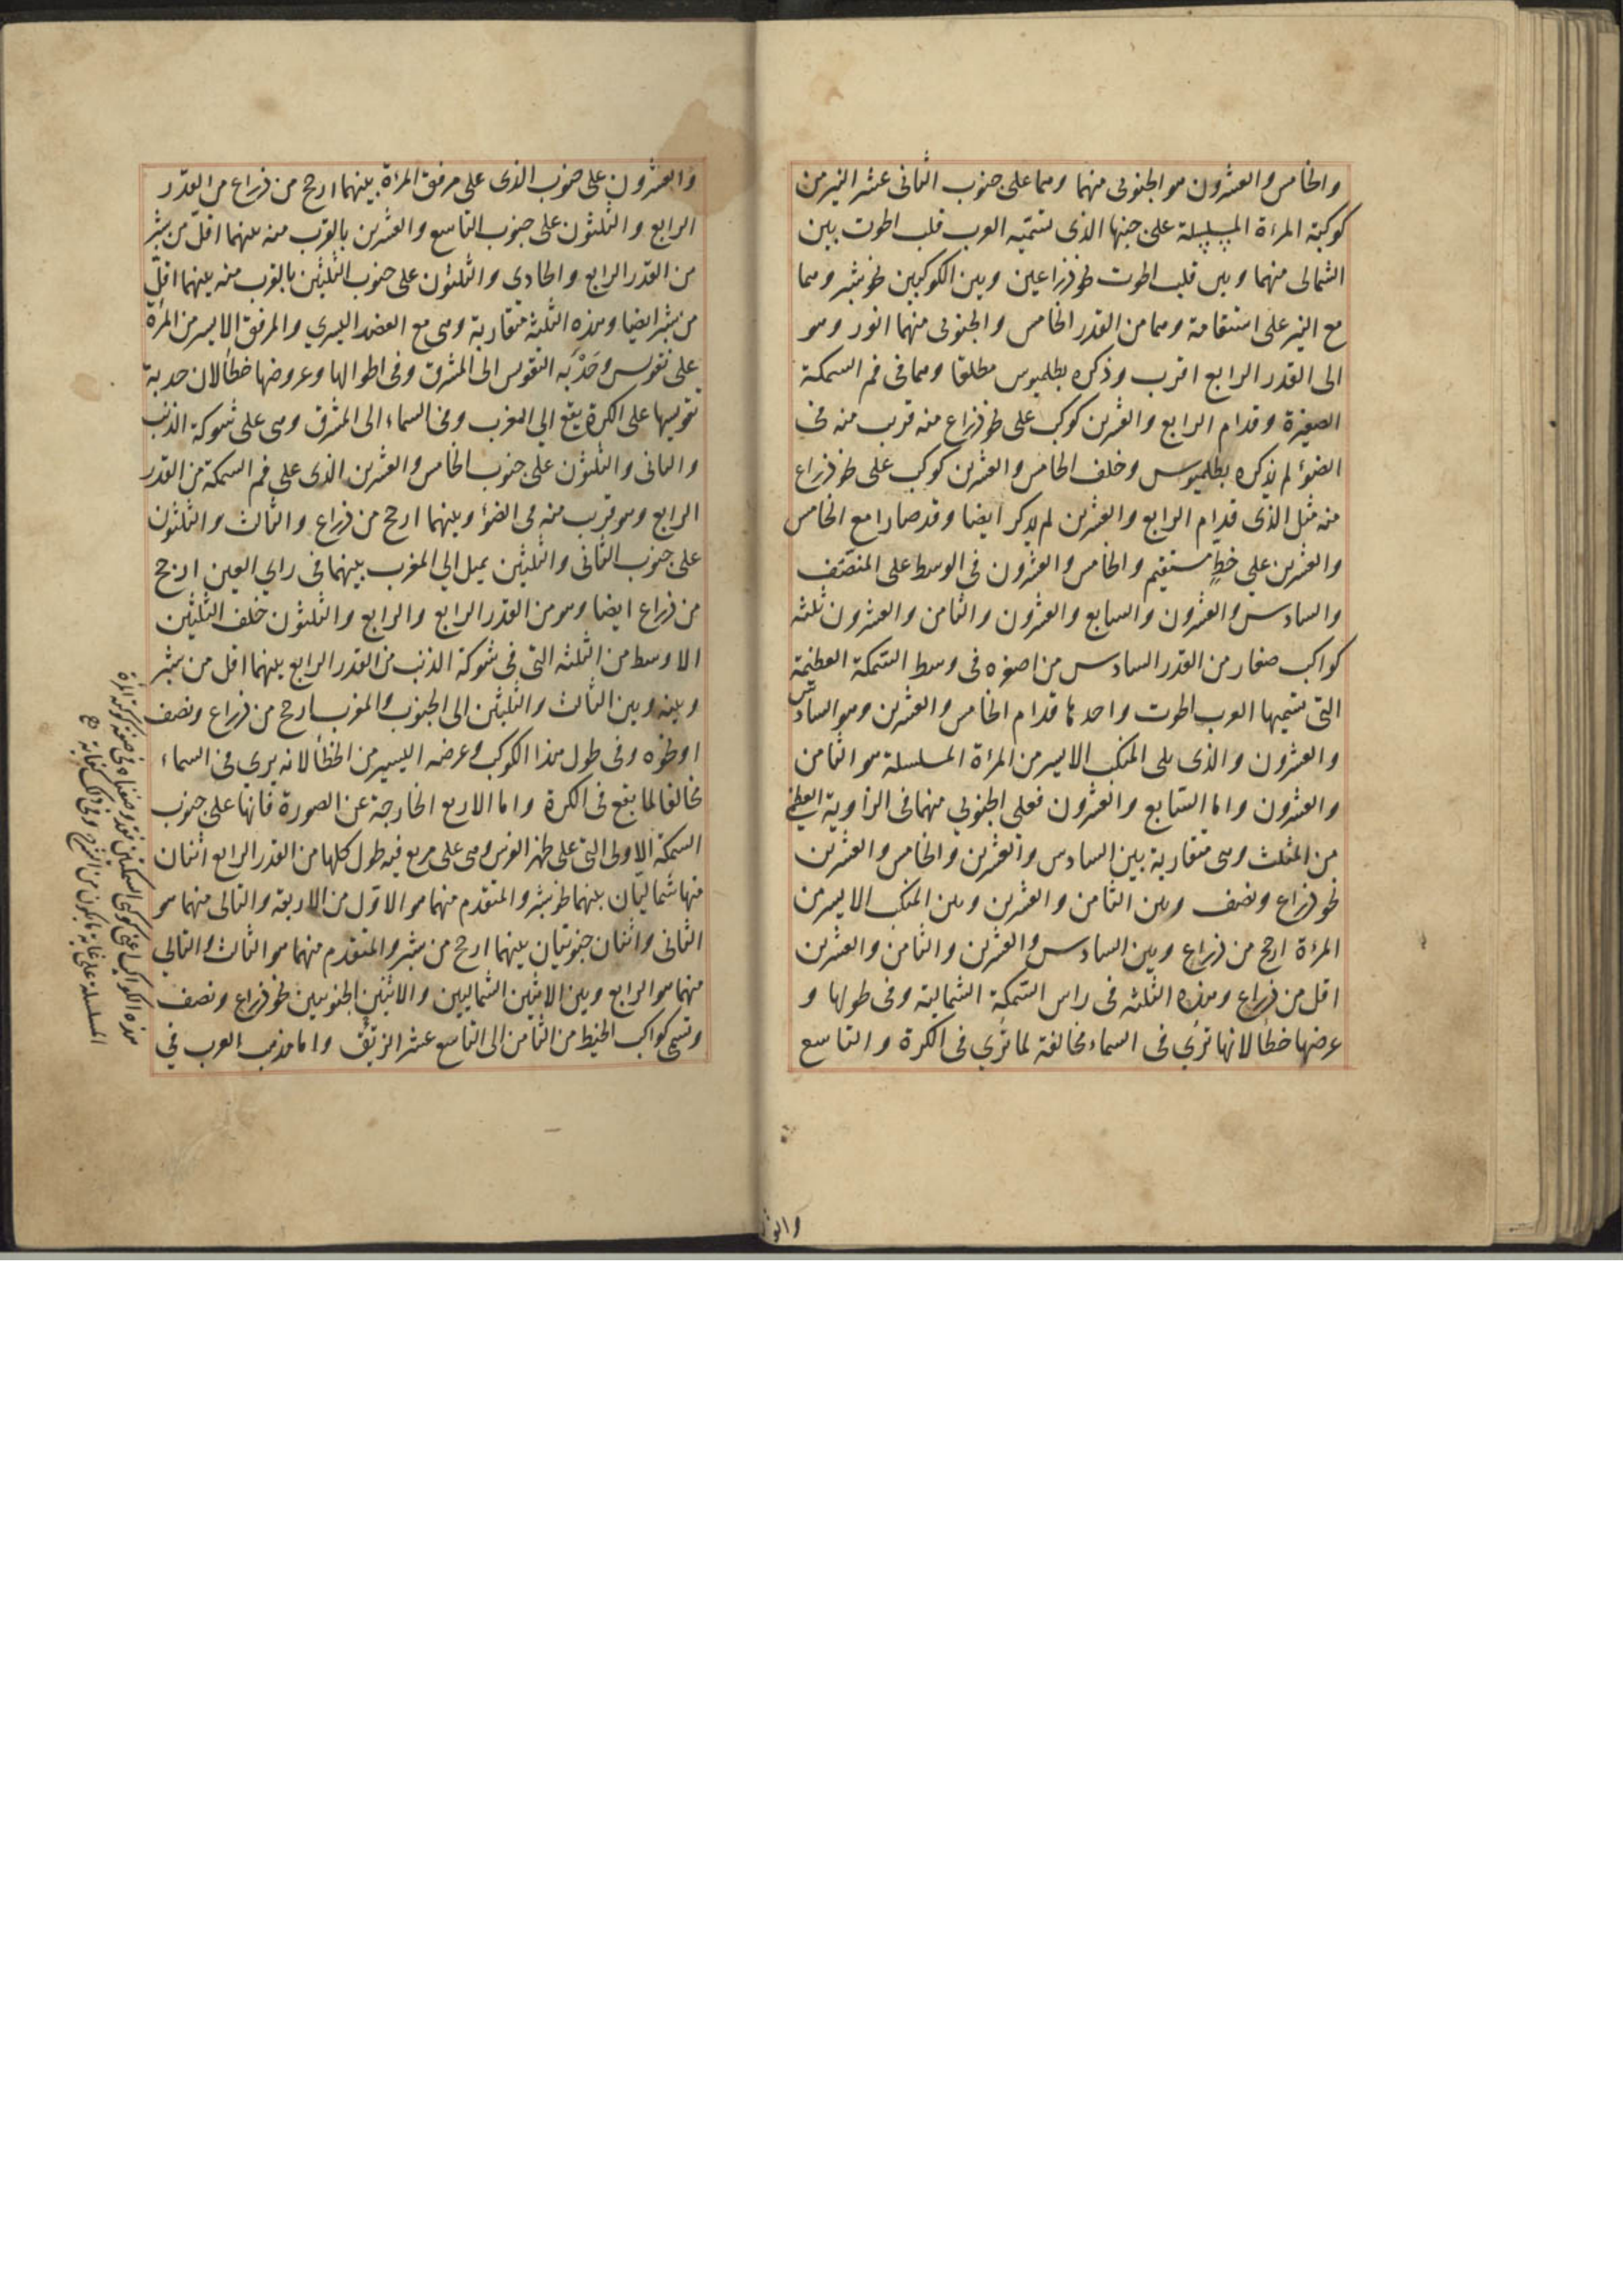 والخامس والعشرون هو الجنوبى منهما وهما على جنوب الثانى عشر النير من
كوكبة المرءة المسلسلة على جنبها الذى تسميه العرب قلب الحوت بين
الشمالى منهما وبين قلب الحوت نحو ذراعين وبين الكوكبين نحو شبر وهما
مع النير على استقامة وهما من القدر الخامس والجنوبى منهما انور وهو
الى القدر الرابع اقرب وذكره بطلميوس مطلقا وهما فى فم السمكة
الصغيرة وقدام الرابع والعشرين كوكب على نحو ذراع منه قريب منه فى
الضوء لم يذكره بطلميوس وخلف الخامس والعشرين كوكب على نحو ذراع
منه مثل الذى قدام الرابع والعشرين لم يذكر ايضا وقد صارا مع الخامس
والعشرين على خط مستقيم والخامس والعشرون فى الوسط على المنتصف
والسادس والعشرون والسابع والعشرون والثامن والعشرون ثلثه
كواكب صغار من القدر السادس من اصغره فى وسط السمكة العظيمة
التى تسميها العرب الحوت واحدها قدام الخامس والعشرين وهو السادس
والعشرون والذى يلى المنكب الايسر من المرءة المسلسلة هو الثامن
والعشرون واما السابع والعشرون فعلى الجنوبى منهما فى الزاوية العظمى
من المثلث وهى متقاربة بين السادس والعشرين والخامس والعشرين
نحو ذراع ونصف وبين الثامن والعشرين وبين المنكب الايسر من
المرءة ارجح من ذراع وبين السادس والعشرين والثامن والعشرين
اقل من ذراع وهذه الثلثه فى راس السمكة الشمالية وفى طولها و
عرضها خطأ لانها ترى فى السماء مخالفة لما ترى فى الكرة والتاسع
والعشرون على جنوب الذى على مرفق المرءة بينهما ارجح من ذراع من القدر
الرابع والثلثون على جنوب التاسع والعشرين بالقرب منه بينهما اقل من شبر
من القدر الرابع والحادى والثلثون على جنوب الثلثين بالقرب منه بينهما اقل
من شبر ايضا وهذه الثلثه متقاربة وهى مع العضد اليسرى والمرفق الايسر من المرءة
على تقويس وحدبه التقويس الى المشرق وفى اطوالها وعروضها خطأ لان حدبة
تقويسها على الكرة يقع الى المغرب وفى السماء الى المشرق وهى على شوكة الذنب
والثانى والثلثون على جنوب الخامس والعشرين الذى على فم السمكة من القدر
الرابع وهو قريب منه فى الضوء وبينهما ارجح من ذراع والثالث والثلثون
على جنوب الثانى والثلثين يميل الى المغرب بينهما فى راى العين ارجح
من ذراع ايضا وهو من القدر الرابع والرابع والثلثون خلف الثلثين
الاوسط من الثلثه التى فى شوكة الذنب من القدر الرابع بينهما اقل من شبر
وبينه وبين الثالث والثلثين الى الجنوب والمغرب ارجح من ذراع ونصف
او نحوه وفى طول هذا الكوكب وعرضه اليسير من الخطأ لانه يرى فى السماء
مخالفا لما يقع فى الكرة واما الاربع الخارجة عن الصورة فانها على جنوب
السمكة الاولى التى على ظهر الفرس وهى على مربع فيه طول كلها من القدر الرابع اثنان
منها شماليان بينهما نحو شبر والمتقدم منهما هو الاول من الاربعه والتالى منهما هو
الثانى واثنان جنوبيان بينهما ارجح من شبر والمتقدم منهما هو الثالث والتالى
منهما هو الرابع وبين الاثنين الشماليين والاثنين الجنوبيين نحو ذراع ونصف
وتسمى كواكب الخيط من الثامن الى التاسع عشر الزيق واما مذهب العرب فى
هذه الكواكب اعنى كوكبى السمكتين فقد وصفناه فى صفة كوكبة المرءة
المسلسلة على غاية ما يكون من الشرح وفى ذلك كفاية